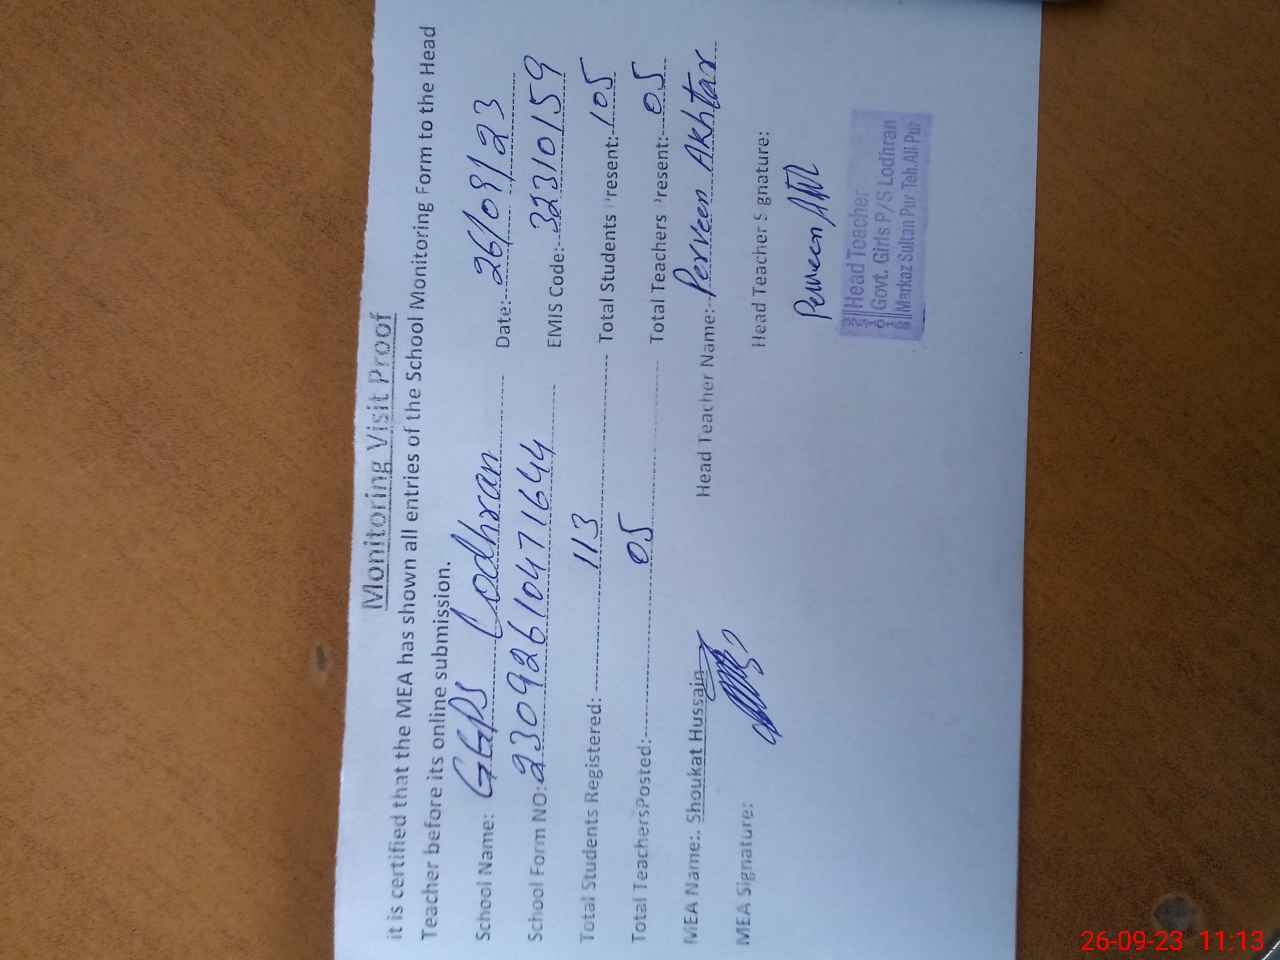 Monitoring Visit Proof
it is certified that the MEA has shown all entries of the School Monitoring Form to the Head
Teacher before its online submission.
School Name: GGPS Lodhran Date: 26/09/23
School Form NO: 23092610471644 EMIS Code: 32310159
Total Students Registered: 113 Total Students Present: 105
Total TeachersPosted: 05 Total Teachers Present: 05
MEA Name:. Shoukat Hussain Head Teacher Name: Perveen Akhtar
MEA Signature: Head Teacher Signature:
Perveen
Head Teacher
Govt. Girls P/S Lodhran
Markaz Sultan Pur Teh. Ali Pur
26-09-23 11:13